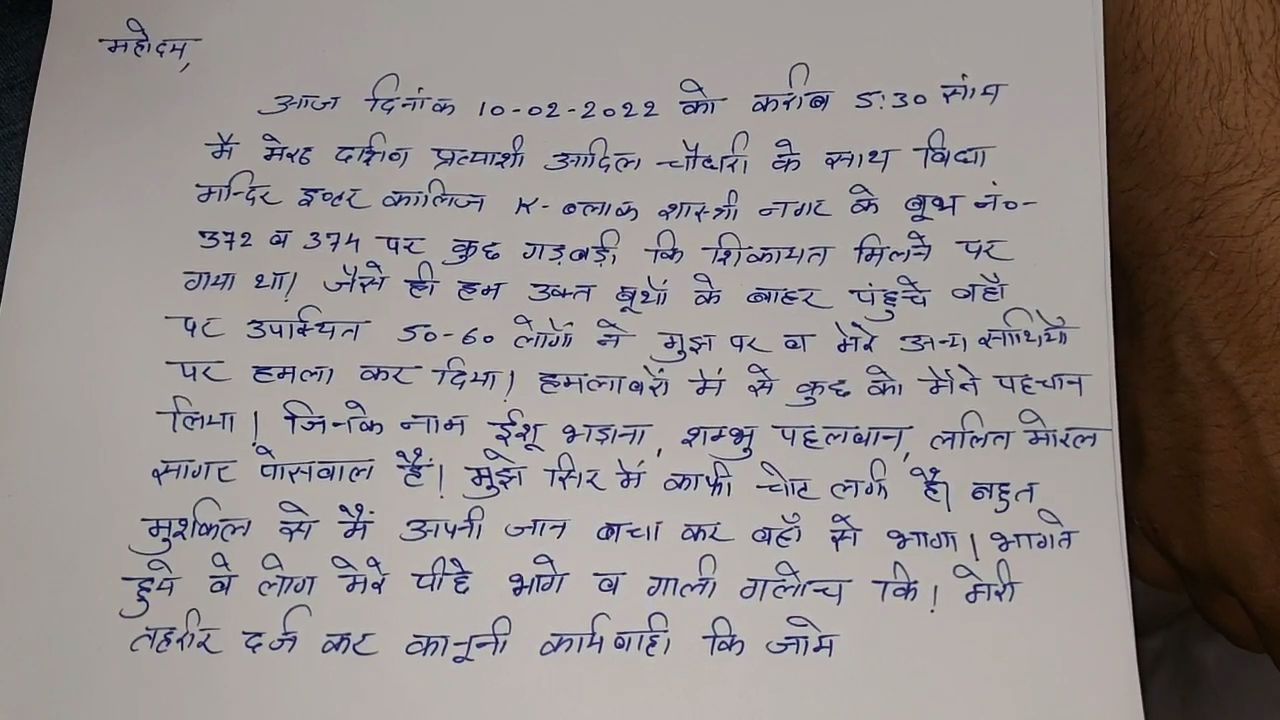 महोदय,
आज दिनांक 10-02-2022 को करीब 5:30 सांय
मै मेरठ दक्षिण प्रत्याशी आदिल चौधरी के साथ विद्या
मन्दिर इण्टर कालिज K-ब्लाक शास्त्री नगर के बूथ नं०-
372 व 374 पर कुछ गड़बड़ी कि शिकायत मिलने पर
गया था। जैसे ही हम उक्त बूथों के बाहर पंहुचे वहाँ
पर उपस्थित 50-60 लोगों ने मुझ पर व मेरे अन्य साथियों
पर हमला कर दिया। हमलावरों में से कुछ को मैंने पहचान
लिया। जिनके नाम ईशू भड़ाना, शम्भु पहलवान, ललित मोरल
सागर पोसवाल हैं। मुझे सिर में काफी चोट लगी है। बहुत
मुश्किल से मैं अपनी जान बचा कर वहाँ से भागा। भागते
हुये वे लोग मेरे पीछे भागे व गाली गलोच कि। मेरी
तहरीर दर्ज कर कानूनी कार्यवाही कि जाये